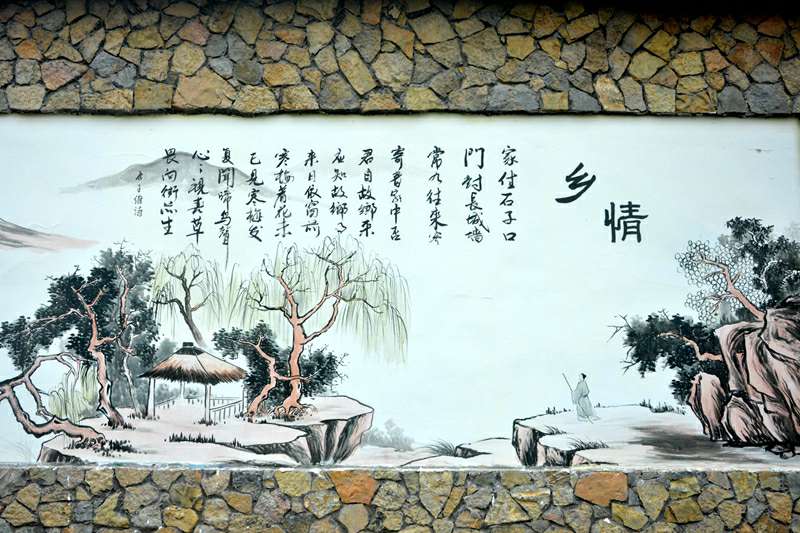 乡情
家住石子口
門对長城墙
常有往来客
寄書家中否
君自故鄉来
应知故鄉事
来日倚窗前
寒梅着花未
已見寒梅发
复聞啼鸟声
心々視春草
畏向阶前生